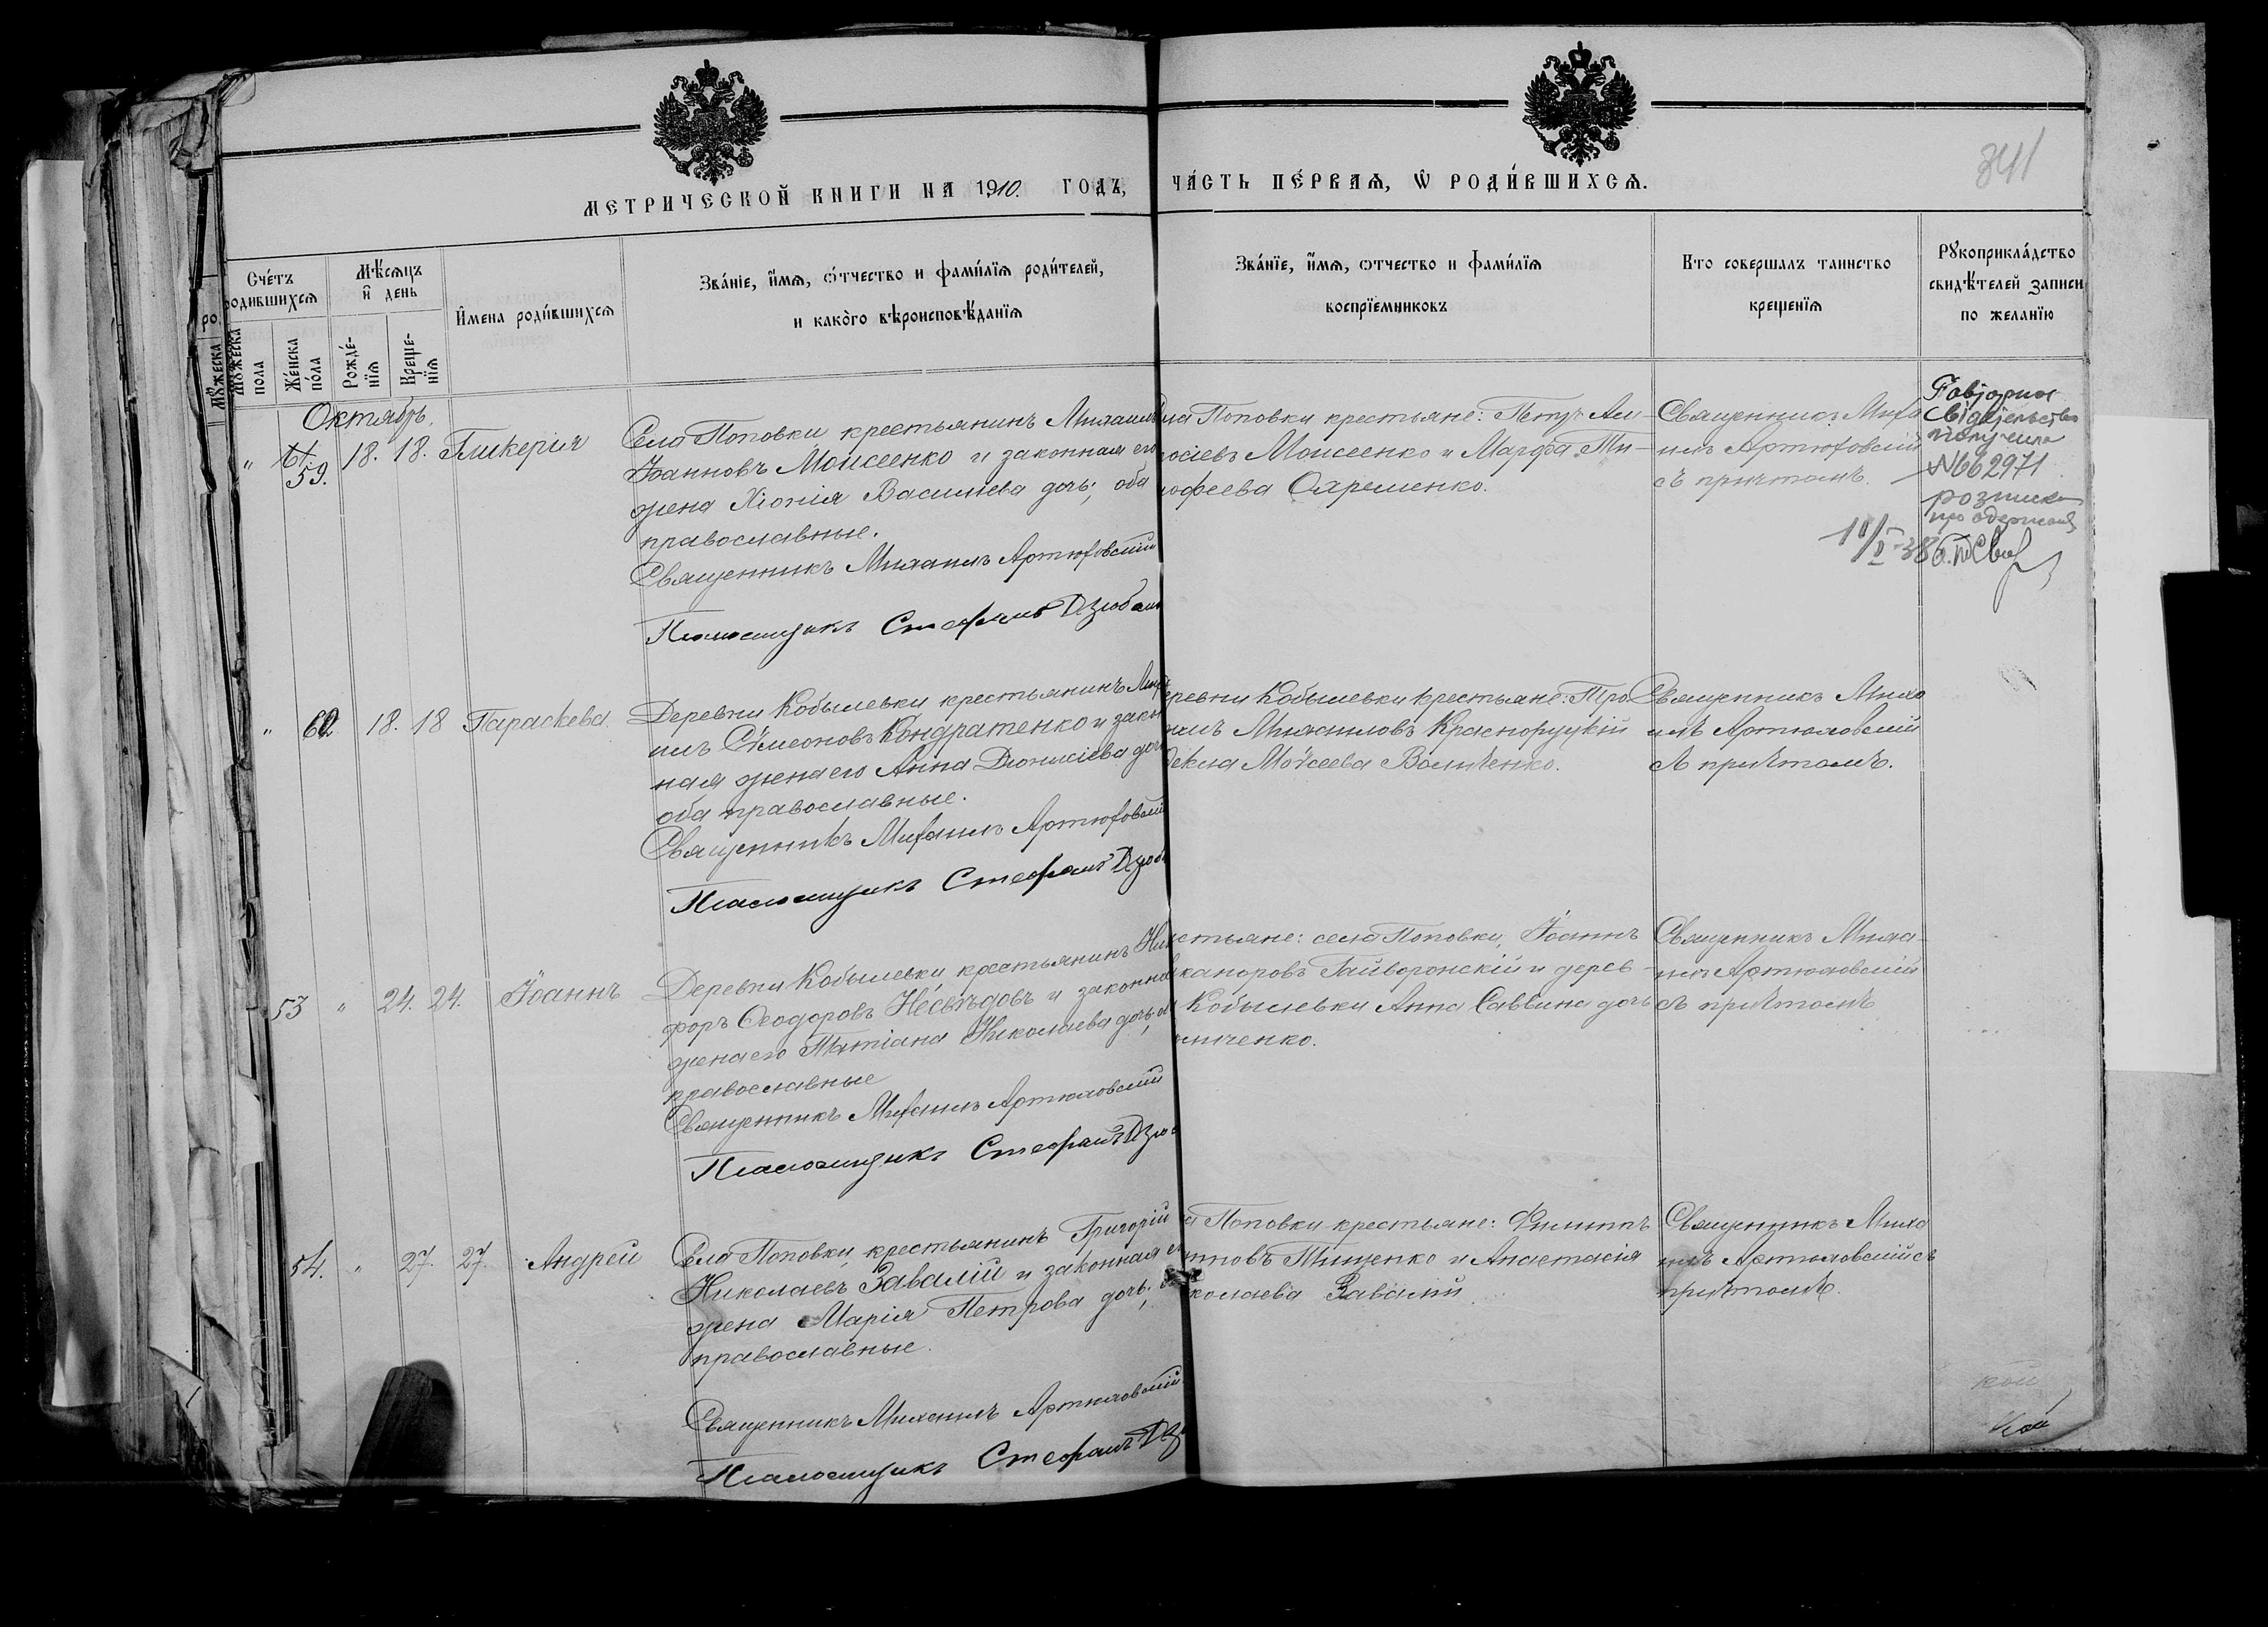 341
МЕТРИЧЕСКОЙ КНИГИ НА 1910. ГОДЪ,
ЧА́СТЬ ПЕ́РВАѦ, Ѡ҆ РОДИ́ВШИХСѦ.
Сче́тъ родившихсѧ
Мѣ́сѧцъ и҆ день
И҆мена роди́вшихсѧ
Зва́нїе, и҆́мѧ, ѻ҆́тчество и фами́лїѧ роди́телей,
и како́го вѣроисповѣ́данїѧ
Зва́нїе, и҆́мѧ, ѻтчество и фами́лїѧ
воспрїемниковъ
Кто совершалъ таинство
крещенїѧ
Рꙋкоприкла́дство
свидѣ́телей записи
по желанїю
Мꙋ́жеска пола
Же́нска по́ла
Рожде́-
нїѧ
Креще-
нїѧ
Октябрь.
" 59. 18. 18. Гликерія
Села Поповки крестьянинъ Михаилъ
Іоанновъ Моисеенко и законная его
жена Хіонія Васильева дочь; оба
православные.
Священникъ Михаилъ Артюховскій
Псаломщикъ Стефанъ Дзюбан
ла Поповки крестьяне: Петръ Аи-
осіевъ Моисеенко и Марфа Ти-
мофеева Охременко.
Священникъ Миха
илъ Артюховскій
съ причтомъ.
свідетельство
получила
№662971
розписка
про одержан
" 60 18. 18 Параскева.
Деревни Кобылевки крестьянинъ Миха
илъ Сѵмеоновъ Кондратенко и закон
ная жена его Анна Діонисіева дочь
оба православные.
Священникъ Михаилъ Артюховскій
Псаломщикъ Стефанъ Дзюб
еревни Кобылевки крестьяне: Тро-
имъ Михаиловъ Красноруцкій
Ѳекла Моѵсеева Вольченко.
Священникъ Миха
илъ Артюховскій
съ причтомъ.
53 " 24. 24. Іоаннъ
Деревни Кобылевки крестьянинъ Ники
форъ Ѳеодоровъ Несвѣдовъ и законная
жена его Татіана Николаева дочь; об
православные
Священникъ Михаилъ Артюховскій
Псаломщикъ Стефанъ Дзюб
естьяне: села Поповки, Іоаннъ
каноровъ Гайворонскій и дерев-
Кобылевки Анна Саввина дочь
ченко.
Священникъ Миха-
илъ Артюховскій
съ причтомъ
54. " 27. 27. Андрей
Села Поповки, крестьянинъ Григорій
Николаевъ Завалій и законная е
жена Марія Петрова дочь; об
православные.
Священникъ Михаилъ Артюховскій
Псаломщикъ Стефанъ Дз
а Поповки крестьяне: Филиппъ
нновъ Тищенко и Анастасія
колаева Завалій
Священникъ Миха
илъ Артюховскій съ
причтомъ.